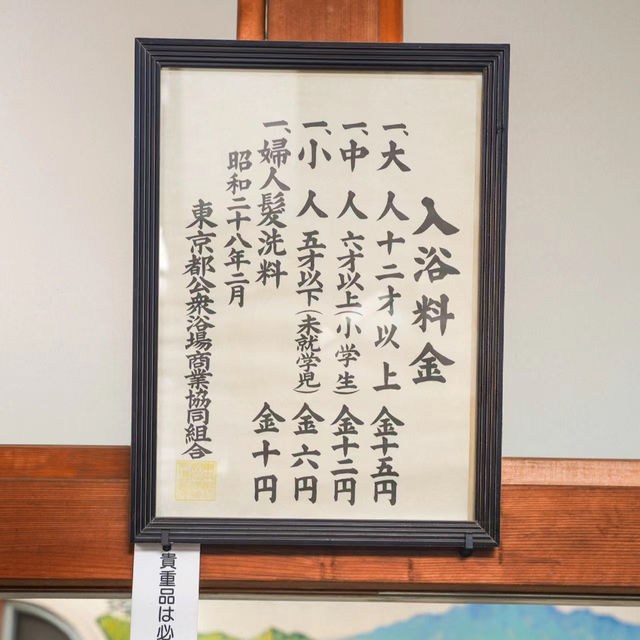 入浴料金
一、大人十二才以上 金十五円
一、中人 六才以上(小学生) 金十二円
一、小人 五才以下(未就学児) 金六円
一、婦人髪洗料 金十円
昭和二十八年二月
東京都公衆浴場商業協同組合
貴重品は必